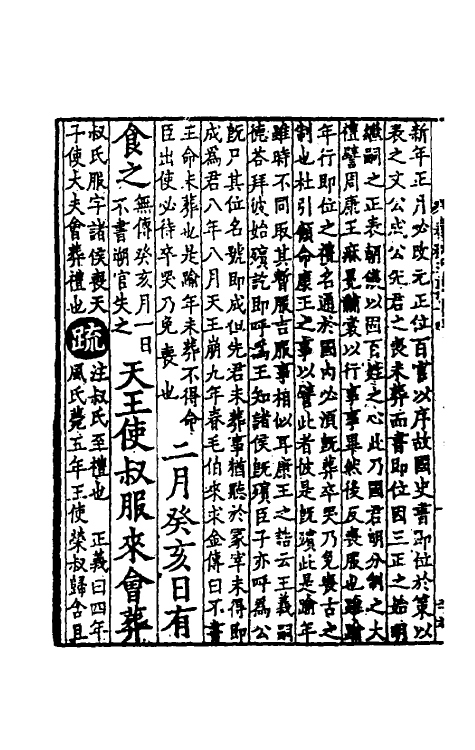 新年正月必改元正位百官以序故國史書即位於策以
表之文公成公先君之喪未葬而書即位因三正之始明
繼嗣之正表朝儀以固百姓之心此乃國君明分制之大
禮譬周康王麻冕黼裳以行事事畢然後反喪服也雖踰
年行即位之禮名通於國內必須既葬卒哭乃免喪古之
制也杜引顧命康王之事以譬此者彼是既殯此是踰年
雖時不同取其暫服吉服事相似耳康王之誥云王義嗣
德荅拜彼始殯訖即呼為王知諸侯既殯臣子亦呼為公
既尸其位名號即成但先君未葬事猶聽於冢宰未得即
成為君八年八月天王崩九年春毛伯來求金傳曰不書
王命未葬也是踰年未葬不得命
臣出使必待卒哭乃免喪也
二月癸亥日有
食之
無傳癸亥月一日
不書朔官失之
天王使叔服來會葬
叔氏服字諸侯喪天
子使大夫會葬禮也
疏
注叔氏至禮也 正義曰四年
風氏薨五年王使榮叔歸含且